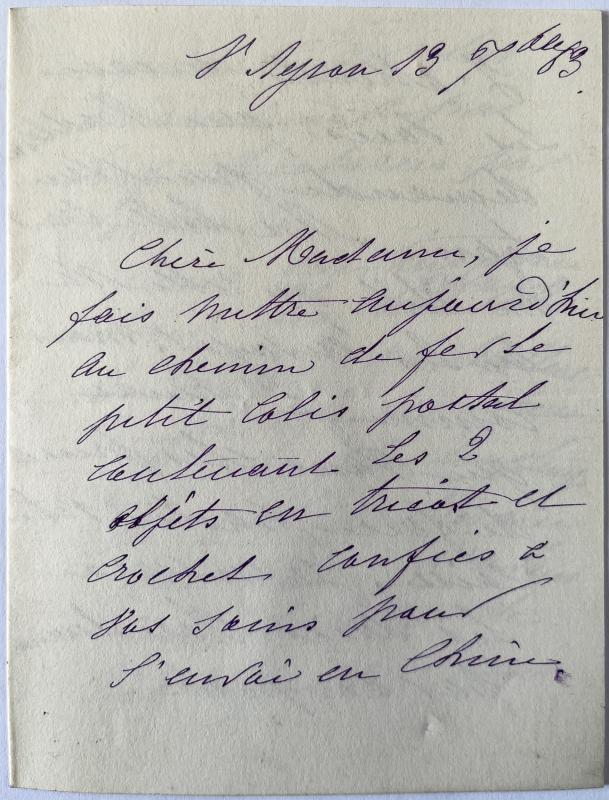 St Ayson 13 7bre 93.
Chère Madame, je
fais mettre aujourd'hui
au chemin de fer le
petit colis postal
contenant les 2
objets en tricot et
crochet confiés à
vos soins pour
l'envoi en Chine.